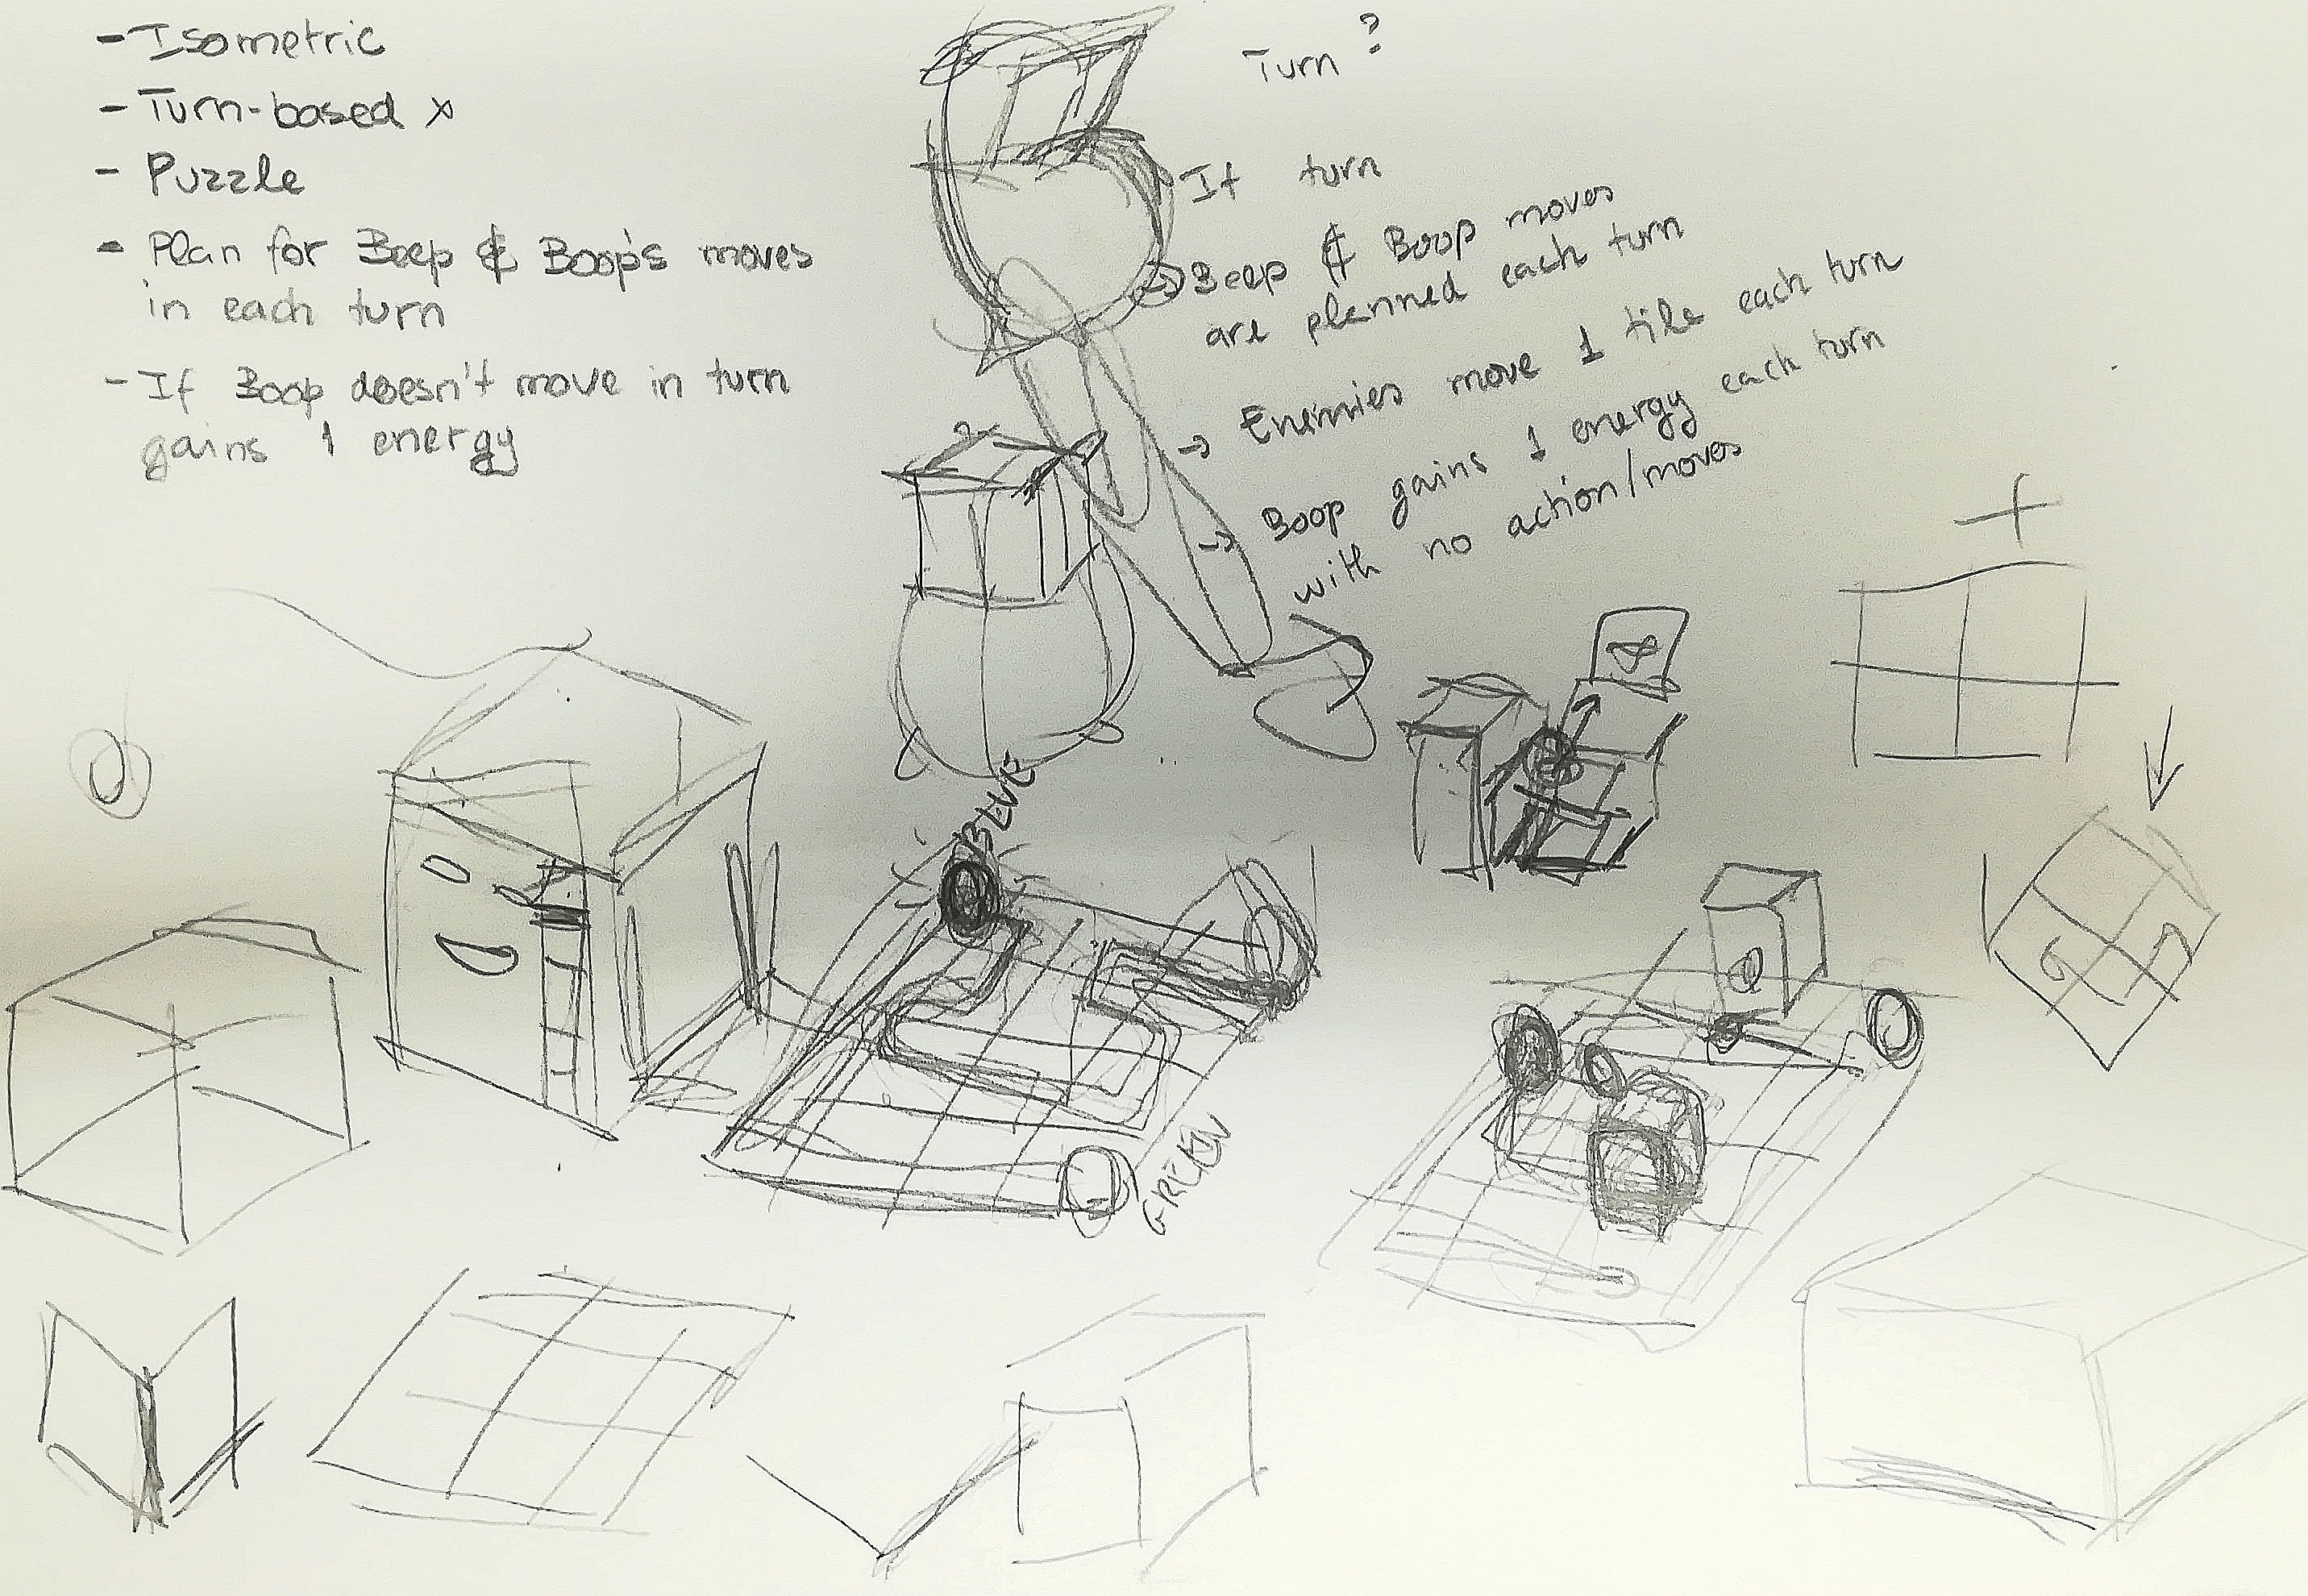 - Isometric
- Turn-based x
- Puzzle
- Plan for Beep & Boop's moves
in each turn
- If Boop doesn't move in turn
gains 1 energy
Turn?
If turn
→ Beep & Boop moves
are planned each turn
→ Enemies move 1 tile each turn
→ Boop gains 1 energy each turn
with no action/moves
BLUE